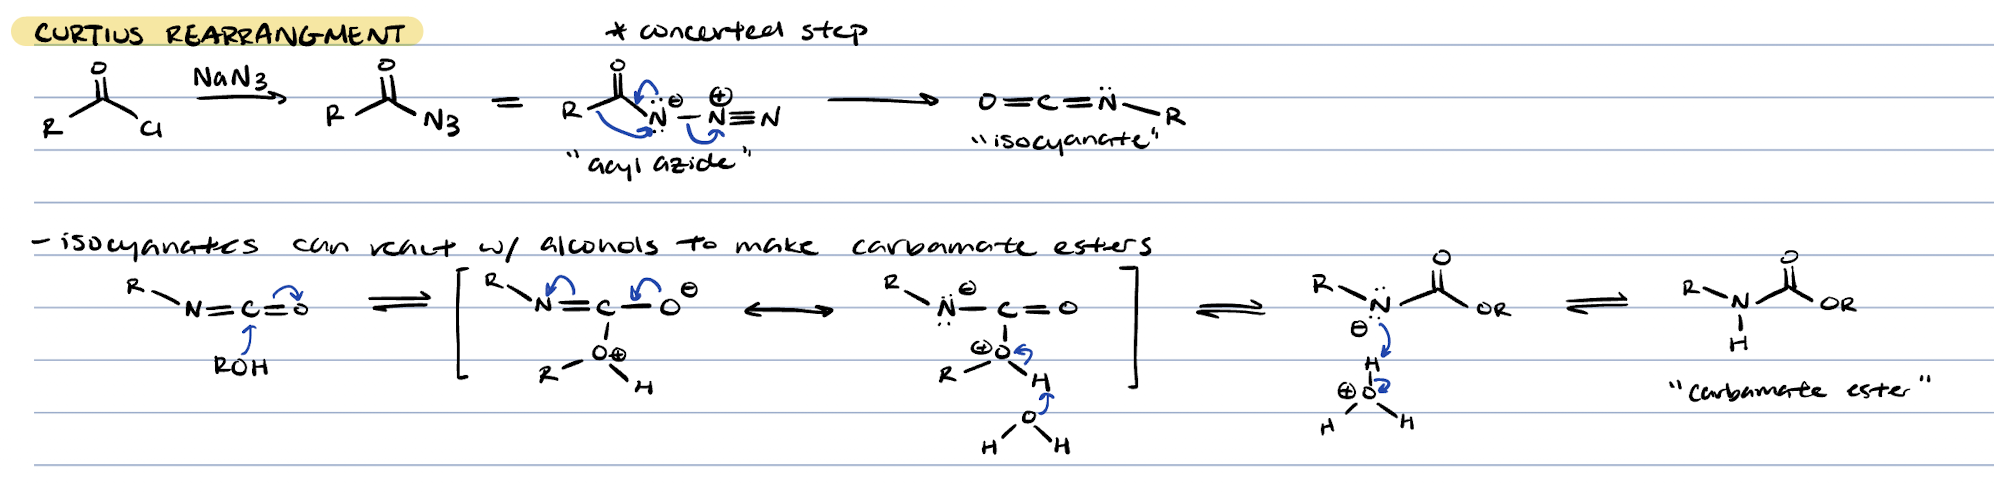 CURTIUS REARRANGMENT * concerted step
O NaN3 O O ⊖ ⊕
R Cl R N3 = R N̈ - N≡N O=C=N̈ R
"acyl azide" "isocyanate"
- isocyanates can react w/ alcohols to make carbamate esters
R N=C=O R N=C-O ⊖ R N̈ ⊖ -C=O R N̈ ⊖ O OR R N H O OR
ROH R O⊕ H R ⊕O H H ⊕O H H "carbamate ester"
H O H